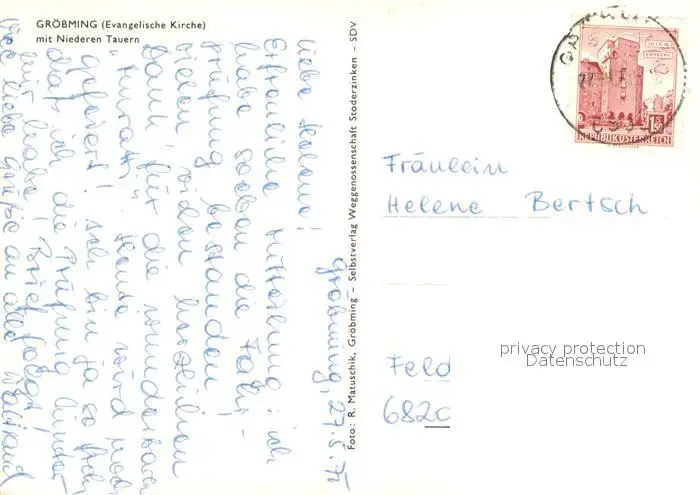 GRÖBMING (Evangelische Kirche)
mit Niederen Tauern
Gröbming, 27.5.75
Liebe Helene!
Erfreuliche Mitteilung: ich
habe soeben die Fahr-
prüfung bestanden!
Vielen, vielen herzlichen
Dank für die wunderbare
Heute wird noch
gefeiert! Ich bin ja so froh,
daß ich die Prüfung hinter
mir habe! Brief folgt!
Viele liebe Grüße an alle
Waltraud
Foto: R. Matuschik, Gröbming – Selbstverlag Weggenossenschaft Stoderzinken – SDV
REPUBLIK ÖSTERREICH
Fräulein
Helene Bertsch
privacy protection
Datenschutz
Feld
6820